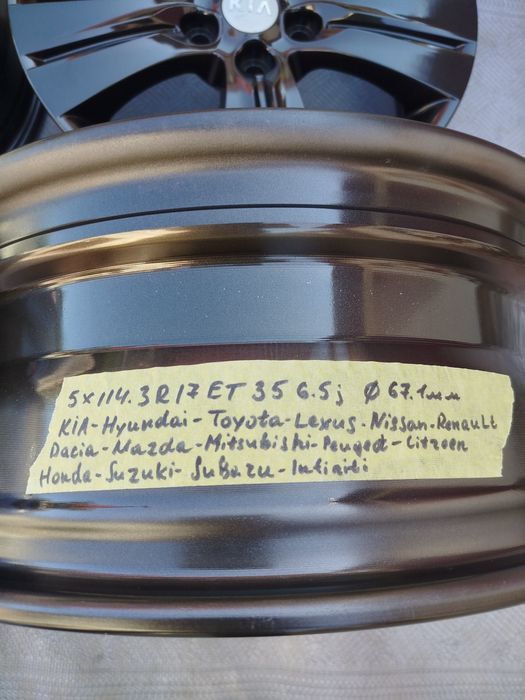 KIA
5x114.3 R17 ET 35 6.5j Ø 67.1мм
KIA-Hyundai-Toyota-Lexus-Nissan-Renault
Dacia-Mazda-Mitsubishi-Peugeot-Citroen
Honda-Suzuki-Subaru-Infiniti